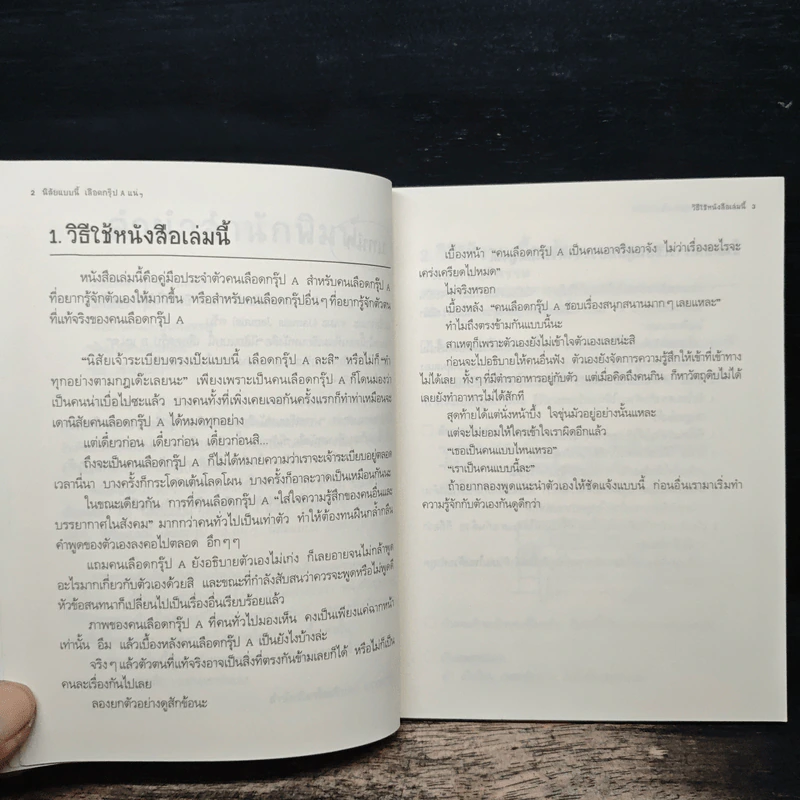 2 นิสัยแบบนี้ เลือดกรุ๊ป A แน่ๆ
1. วิธีใช้หนังสือเล่มนี้
หนังสือเล่มนี้คือคู่มือประจำตัวคนเลือดกรุ๊ป A สำหรับคนเลือดกรุ๊ป A
ที่อยากรู้จักตัวเองให้มากขึ้น หรือสำหรับคนเลือดกรุ๊ปอื่นๆ ที่อยากรู้จักตัวตน
ที่แท้จริงของคนเลือดกรุ๊ป A
"นิสัยเจ้าระเบียบตรงเป๊ะแบบนี้ เลือดกรุ๊ป A ละสิ" หรือไม่ก็ "ทำ
ทุกอย่างตามกฎเด๊ะเลยนะ" เพียงเพราะเป็นคนเลือดกรุ๊ป A ก็โดนมองว่า
เป็นคนน่าเบื่อไปซะแล้ว บางคนทั้งที่เพิ่งเคยเจอกันครั้งแรกก็ทำท่าเหมือนจะ
เดานิสัยคนเลือดกรุ๊ป A ได้หมดทุกอย่าง
แต่เดี๋ยวก่อน เดี๋ยวก่อน เดี๋ยวก่อนสิ...
ถึงจะเป็นคนเลือดกรุ๊ป A ก็ไม่ได้หมายความว่าเราจะเจ้าระเบียบอยู่ตลอด
เวลานี่นา บางครั้งก็กระโดดเต้นโลดโผน บางครั้งก็อาละวาดเป็นเหมือนกันนะ
ในขณะเดียวกัน การที่คนเลือดกรุ๊ป A "ใส่ใจความรู้สึกของคนอื่นและ
บรรยากาศในสังคม" มากกว่าคนทั่วไปเป็นเท่าตัว ทำให้ต้องทนฝืนกล้ำกลืน
คำพูดของตัวเองลงคอไปตลอด อึกๆๆ
แถมคนเลือดกรุ๊ป A ยังอธิบายตัวเองไม่เก่ง ก็เลยอายจนไม่กล้าพูด
อะไรมากเกี่ยวกับตัวเองด้วยสิ และขณะที่กำลังสับสนว่าควรจะพูดหรือไม่พูดดี
หัวข้อสนทนาก็เปลี่ยนไปเป็นเรื่องอื่นเรียบร้อยแล้ว
ภาพของคนเลือดกรุ๊ป A ที่คนทั่วไปมองเห็น คงเป็นเพียงแค่ฉากหน้า
เท่านั้น อืม แล้วเบื้องหลังคนเลือดกรุ๊ป A เป็นยังไงบ้างล่ะ
จริงๆ แล้วตัวตนที่แท้จริงอาจเป็นสิ่งที่ตรงกันข้ามเลยก็ได้ หรือไม่ก็เป็น
คนละเรื่องกันไปเลย
ลองยกตัวอย่างดูสักข้อนะ
วิธีใช้หนังสือเล่มนี้ 3
เบื้องหน้า "คนเลือดกรุ๊ป A เป็นคนเอาจริงเอาจัง ไม่ว่าเรื่องอะไรจะ
เคร่งเครียดไปหมด"
ไม่จริงหรอก
เบื้องหลัง "คนเลือดกรุ๊ป A ชอบเรื่องสนุกสนานมากๆ เลยแหละ"
ทำไมถึงตรงข้ามกันแบบนี้นะ
สาเหตุก็เพราะตัวเองยังไม่เข้าใจตัวเองเลยน่ะสิ
ก่อนจะไปอธิบายให้คนอื่นฟัง ตัวเองยังจัดการความรู้สึกให้เข้าที่เข้าทาง
ไม่ได้เลย ทั้งๆ ที่มีตำราอาหารอยู่กับตัว แต่เมื่อคิดถึงคนกิน ก็หาวัตถุดิบไม่ได้
เลยยังทำอาหารไม่ได้สักที
สุดท้ายได้แต่นั่งหน้าบึ้ง ใจขุ่นมัวอยู่อย่างนั้นแหละ
แต่จะไม่ยอมให้ใครเข้าใจเราผิดอีกแล้ว
"เธอเป็นคนแบบไหนเหรอ"
"เราเป็นคนแบบนี้ละ"
ถ้าอยากลองพูดแนะนำตัวเองให้ชัดแจ้งแบบนี้ ก่อนอื่นเรามาเริ่มทำ
ความรู้จักกับตัวเองกันดูดีกว่า